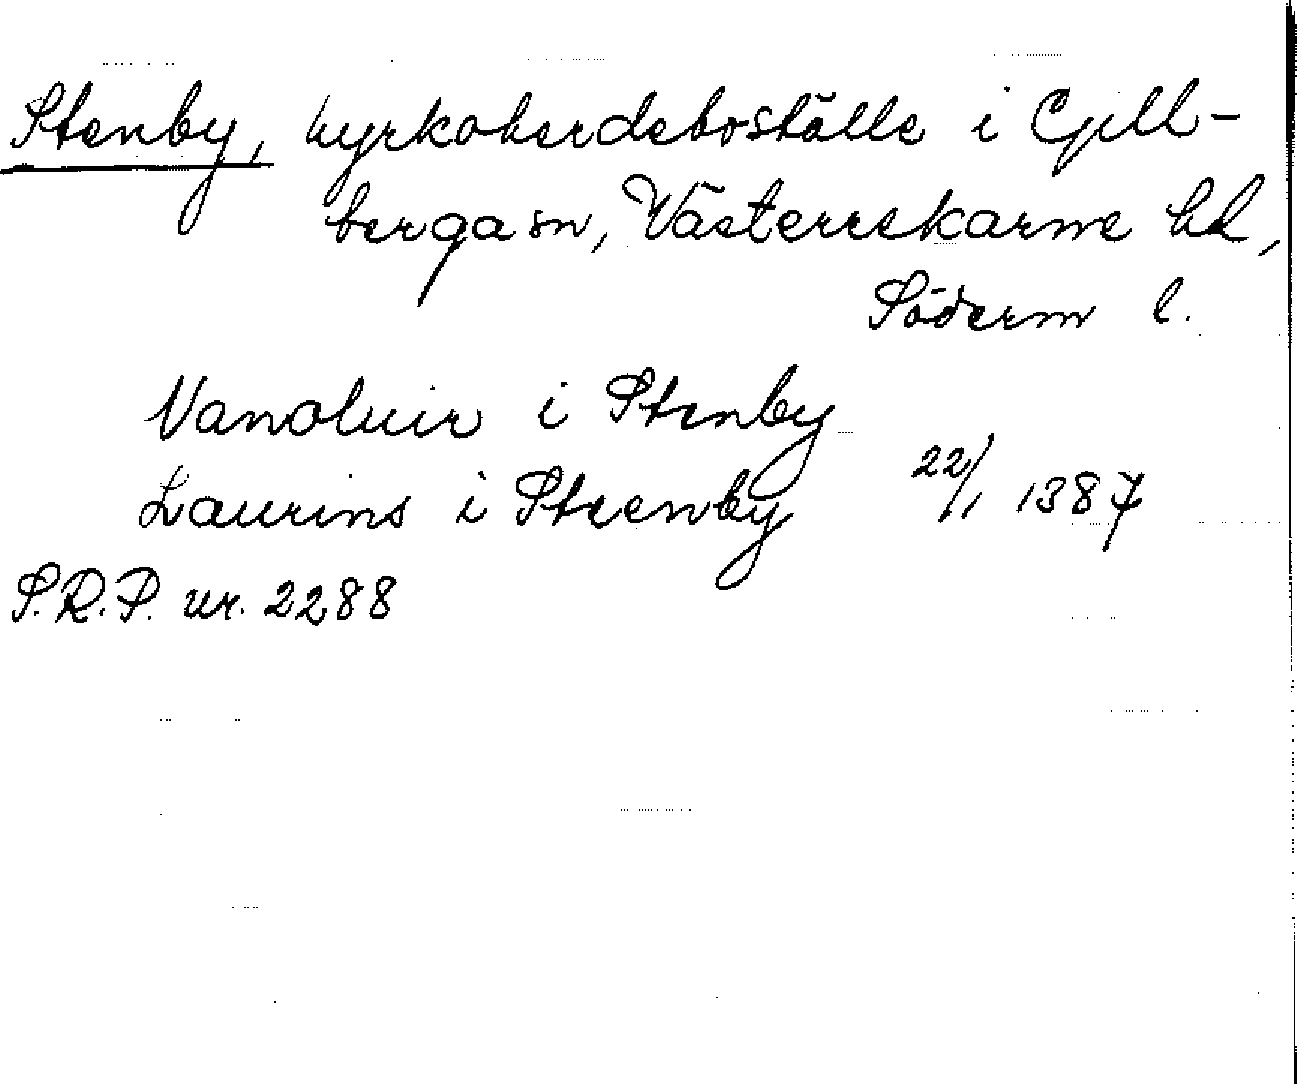 Stenby, kyrkoherdeboställe i Gill-
berga sn, Västerrekarne hd,
Söderm l.
i Stenby
Laurins i Steenby 22/1 1387
S.R.P. nr. 2288